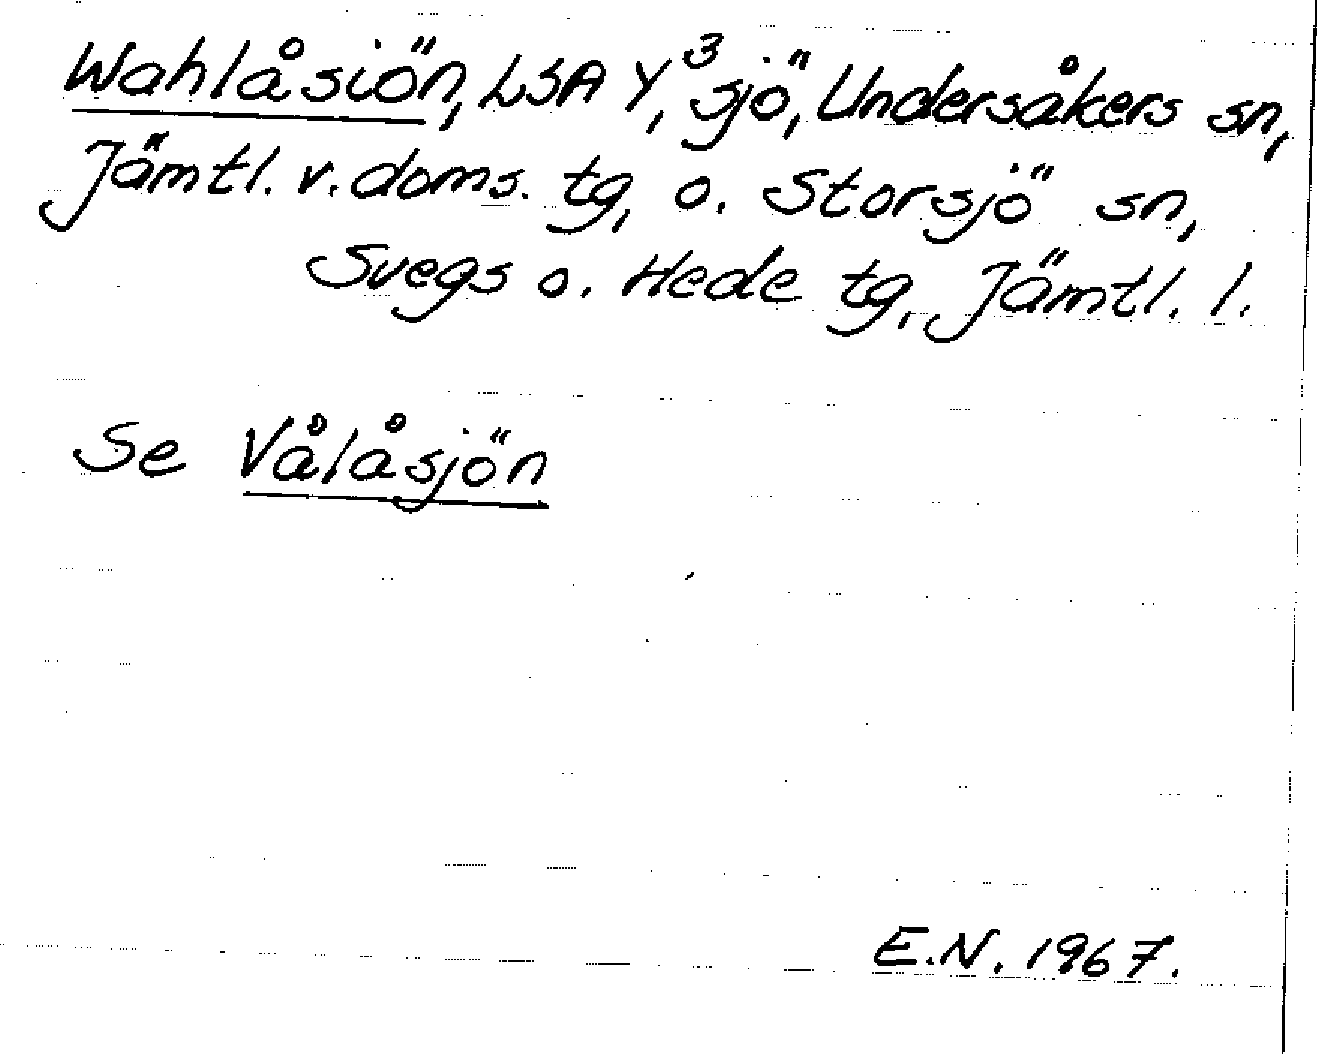 Wahlåsiön, LSA Y, ³ sjö, Undersåkers sn,
Jämtl. v. doms. tg, o. Storsjö sn,
Svegs o. Hede tg, Jämtl. l.
Se Vålåsjön
E.N. 1967.